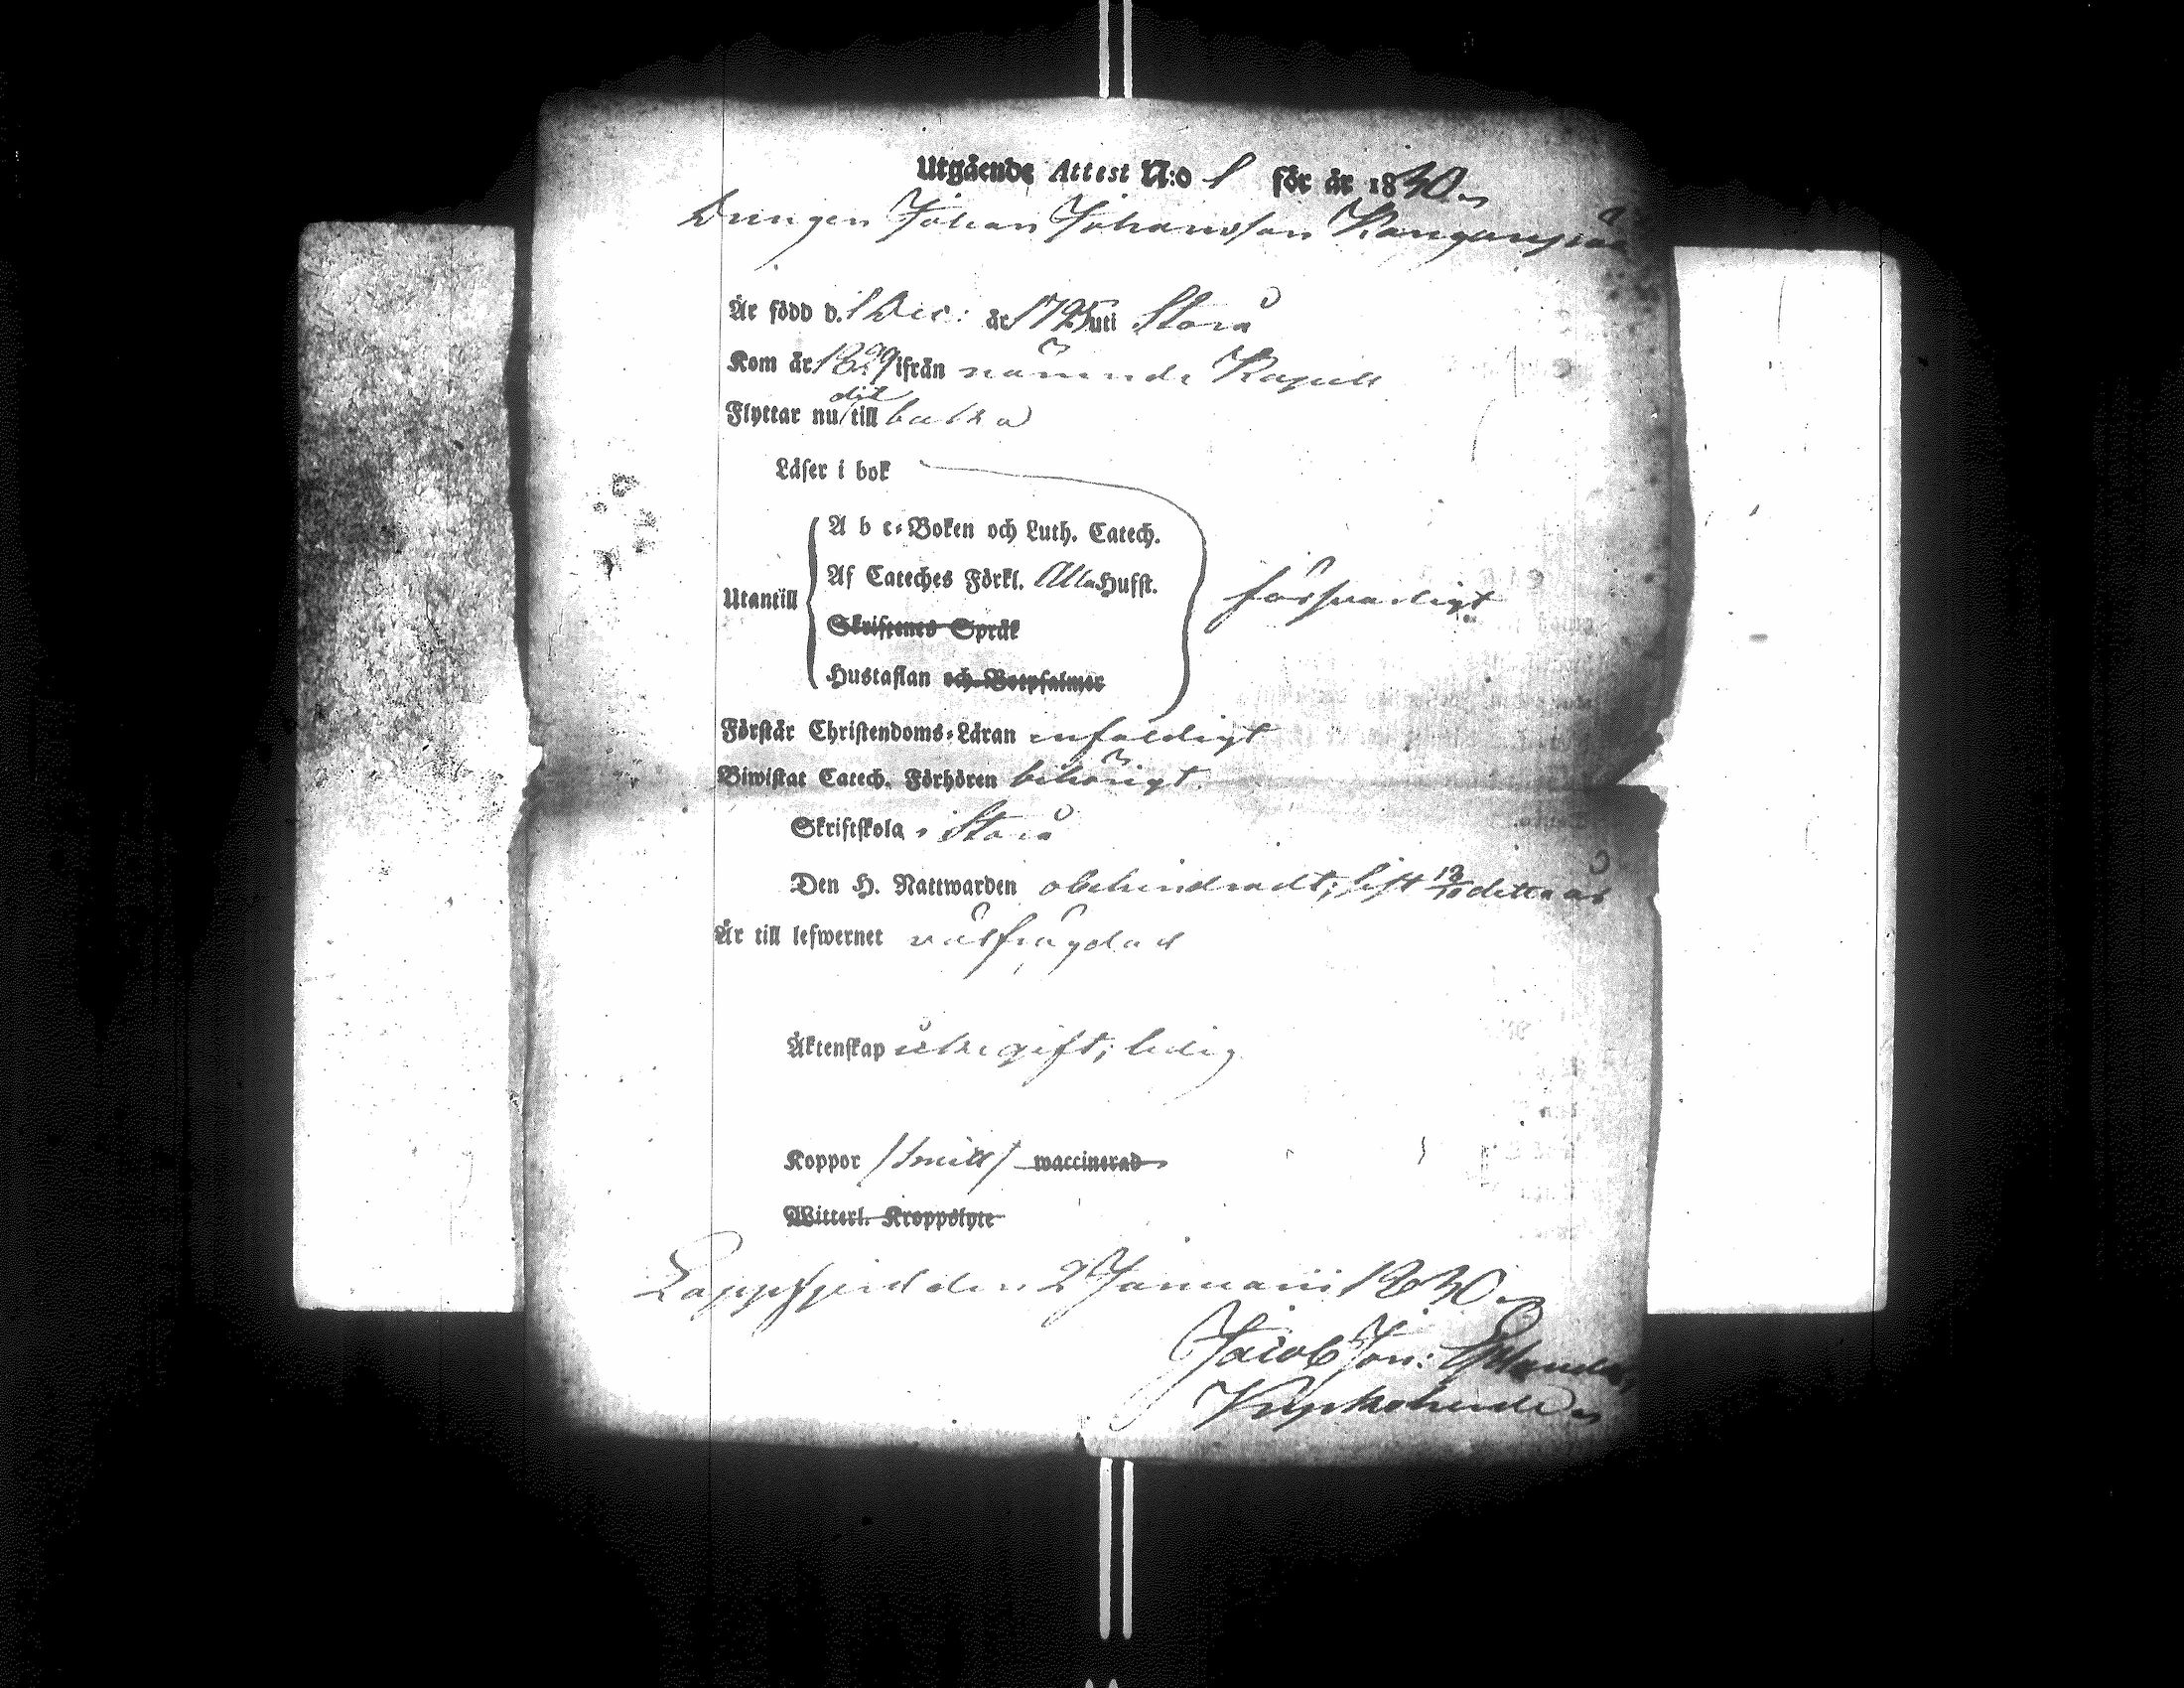 Utgående Attest N:o 1 för år 1830.
Drengen Johan Johansson
Är född d. 1 Dec: år 1795 uti Storå
Kom år 1829 ifrån nämnde Kapell
Flyttar nu dit till baka
Läser i bok
A b c-Boken och Luth. Catech.
Af Cateches Förkl. Alla Husst.
Utantill
försvarligt
Skriftenes Språk
Hustaflan och Botpsalmer
Förstår Christendoms-Läran enfaldigt
Biwistat Catech. Förhören behörigt.
Skriftskola i Storå
Den H. Nattwarden obehindradt; sist 13/10 detta år
Är till lefwernet välfrägdad
Äktenskap obegift; ledig
Koppor waccinerad
Witterl. Kroppslyte
Lappfjerd den 2 Januarii 1830.
Jacob Joh:
Kyrkoherde